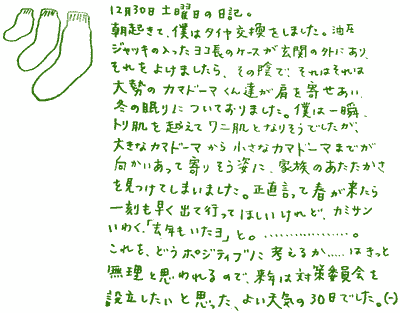 12月30日土曜日の日記。
朝起きて、僕はタイヤ交換をしました。油圧
ジャッキの入ったヨコ長のケースが玄関の外にあり、
それをよけましたら、その陰で、それはそれは
大勢のカマドーマくん達が肩を寄せあい、
冬の眠りについておりました。僕は一瞬、
トリ肌を越えてワニ肌となりそうでしたが、
大きなカマドーマから小さなカマドーマまでが
向かいあって寄りそう姿に、家族のあたたかさ
を見つけてしまいました。正直言って春が来たら
一刻も早く出て行ってほしいけれど、カミサン
いわく、「去年もいたヨ」と。………………。
これを、どうポジティブに考えるか……はきっと
無理と思われるので、来年は対策委員会を
設立したいと思った、よい天気の30日でした。(-)